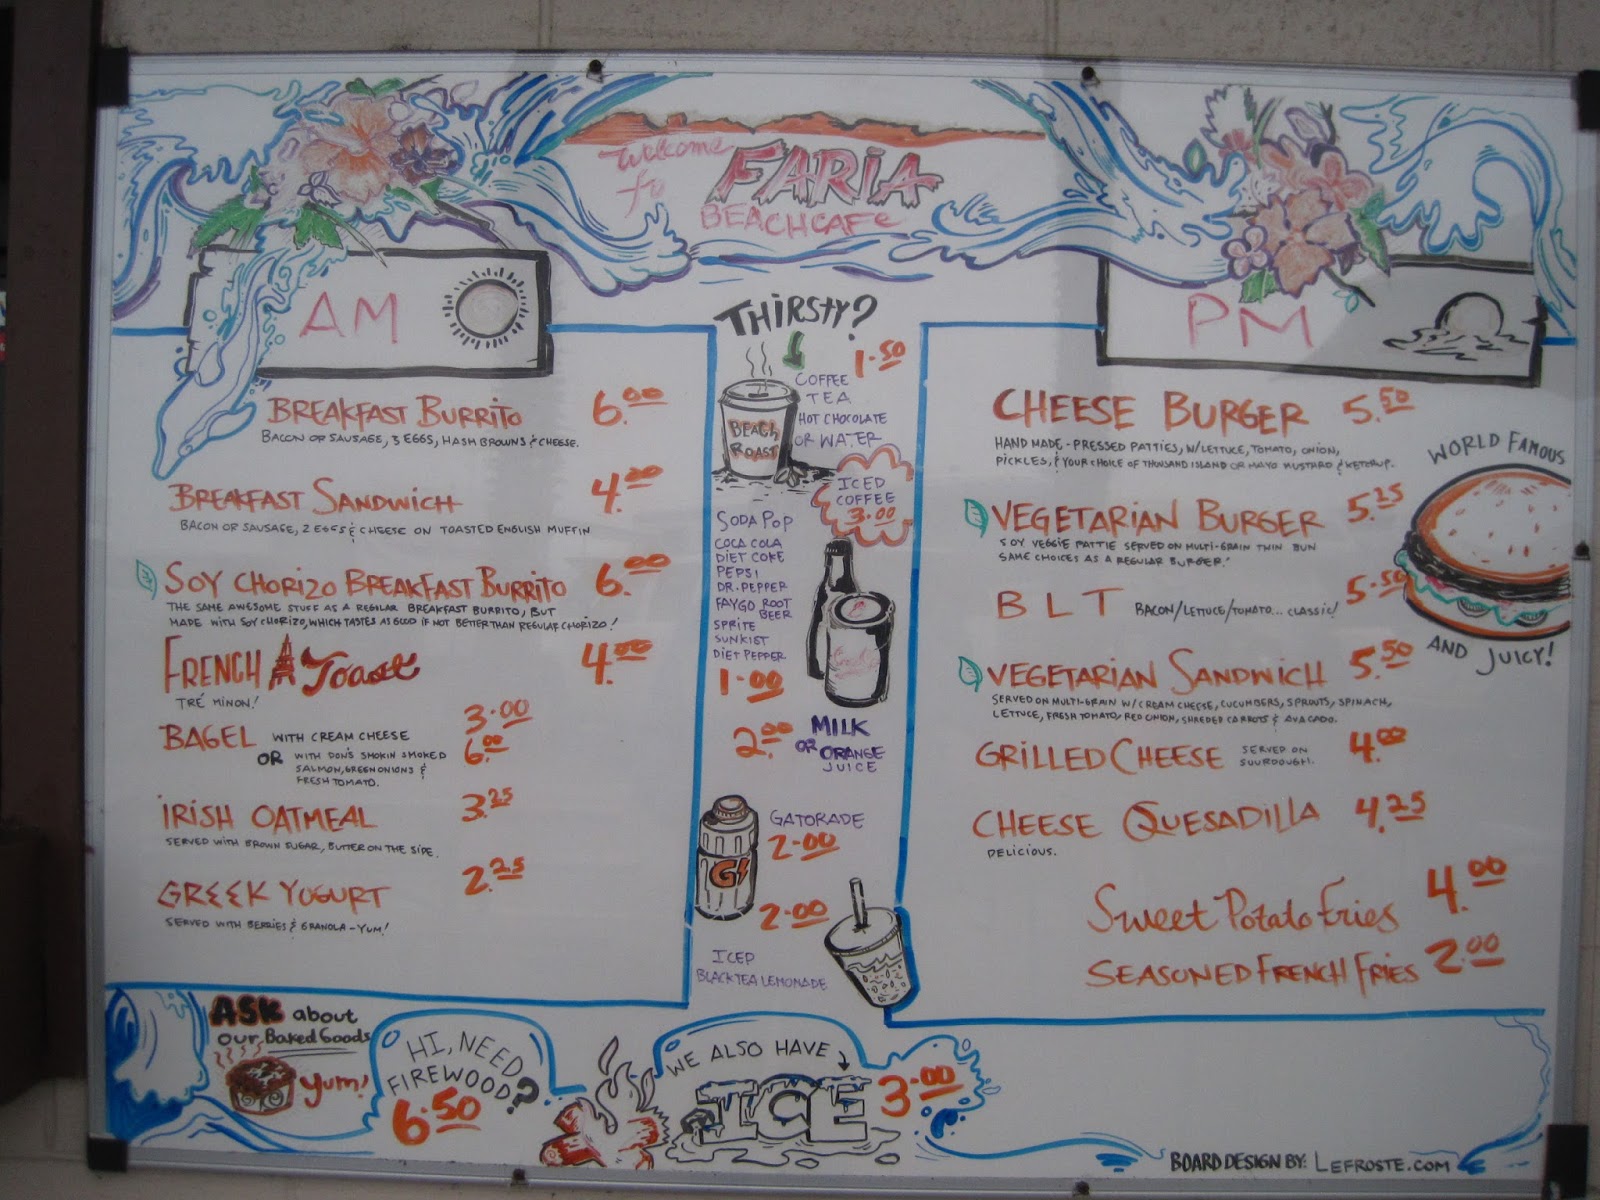 Welcome to FARIA
BEACH CAFE
AM
BREAKFAST BURRITO 6.00
BACON OR SAUSAGE, 3 EGGS, HASH BROWNS & CHEESE.
BREAKFAST SANDWICH 4.00
BACON OR SAUSAGE, 2 EGGS & CHEESE ON TOASTED ENGLISH MUFFIN
SOY CHORIZO BREAKFAST BURRITO 6.00
THE SAME AWESOME STUFF AS A REGULAR BREAKFAST BURRITO, BUT
MADE WITH SOY CHORIZO, WHICH TASTES AS GOOD IF NOT BETTER THAN REGULAR CHORIZO!
FRENCH Toast 4.00
TRÉ MINON!
BAGEL WITH CREAM CHEESE 3.00
OR WITH DON'S SMOKIN SMOKED 6.00
SALMON, GREEN ONIONS &
FRESH TOMATO.
IRISH OATMEAL 3.25
SERVED WITH BROWN SUGAR, BUTTER ON THE SIDE.
GREEK YOGURT 2.25
SERVED WITH BERRIES & GRANOLA - YUM!
THIRSTY?
1.50
COFFEE
TEA
HOT CHOCOLATE
OR WATER
BEACH
ROAST
ICED
COFFEE
3.00
SODA POP
COCA COLA
DIET COKE
PEPSI
DR. PEPPER
FAYGO ROOT
BEER
SPRITE
SUNKIST
DIET PEPPER
1.00
2.00 MILK
OR ORANGE
JUICE
GATORADE
2.00
G
2.00
ICED
BLACK TEA LEMONADE
PM
CHEESE BURGER 5.50
HAND MADE - PRESSED PATTIES, W/LETTUCE, TOMATO, ONION,
PICKLES, & YOUR CHOICE OF THOUSAND ISLAND OR MAYO MUSTARD & KETCHUP.
VEGETARIAN BURGER 5.25
SOY VEGGIE PATTIE SERVED ON MULTI-GRAIN THIN BUN
SAME CHOICES AS A REGULAR BURGER.
B L T BACON/LETTUCE/TOMATO... CLASSIC! 5.50
VEGETARIAN SANDWICH 5.50
SERVED ON MULTI-GRAIN W/CREAM CHEESE, CUCUMBERS, SPROUTS, SPINACH,
LETTUCE, FRESH TOMATO, RED ONION, SHREDED CARROTS & AVACADO.
GRILLED CHEESE SERVED ON 4.00
SOURDOUGH.
CHEESE QUESADILLA 4.25
DELICIOUS.
Sweet Potato Fries 4.00
SEASONED FRENCH FRIES 2.00
WORLD FAMOUS
AND JUICY!
ASK about
our Baked Goods
yum!
HI, NEED
FIREWOOD?
6.50
WE ALSO HAVE
ICE 3.00
BOARD DESIGN BY: LEFROSTE.COM